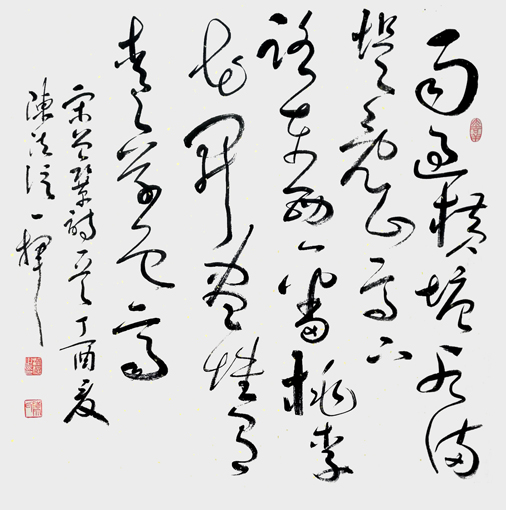 雨過橫塘水滿
堤亂山高下
路東西一番桃李
花開盡惟有
青青草色齊
宋曾鞏詩一首丁酉夏
陳 一揮